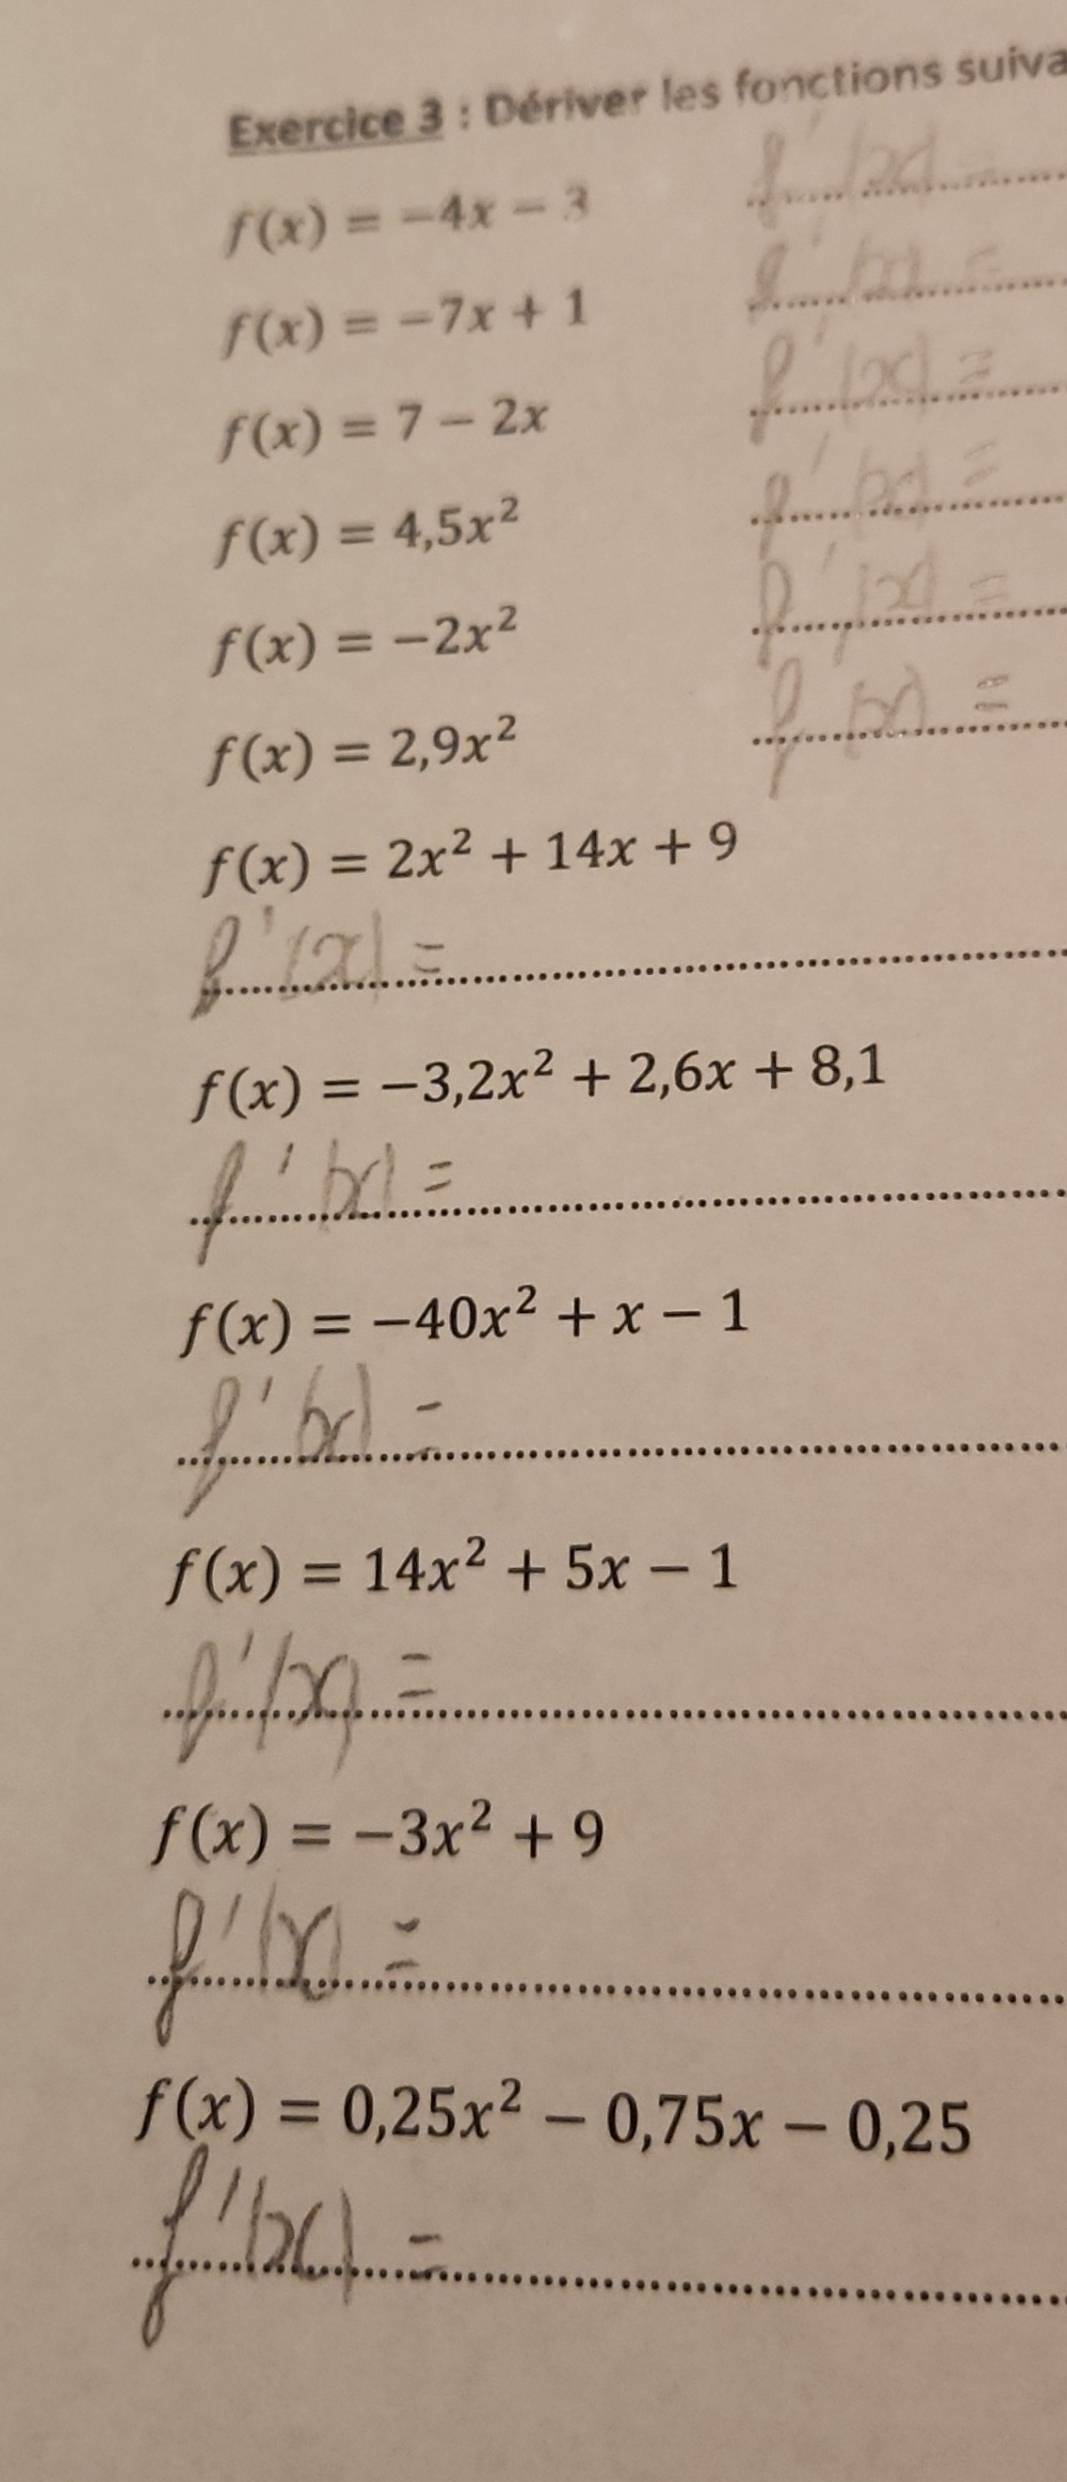 Exercice 3 : Dériver les fonctions suiva
f(x) = −4x − 3 f'(x) =
f(x) = −7x + 1 f'(x) =
f(x) = 7 − 2x f'(x) =
f(x) = 4,5x² f'(x) =
f(x) = −2x² f'(x) =
f(x) = 2,9x² f(x) =
f(x) = 2x² + 14x + 9
f'(x) =
f(x) = −3,2x² + 2,6x + 8,1
f'(x) =
f(x) = −40x² + x − 1
f'(x) =
f(x) = 14x² + 5x − 1
f'(x) =
f(x) = −3x² + 9
f'(x) =
f(x) = 0,25x² − 0,75x − 0,25
f'(x) =